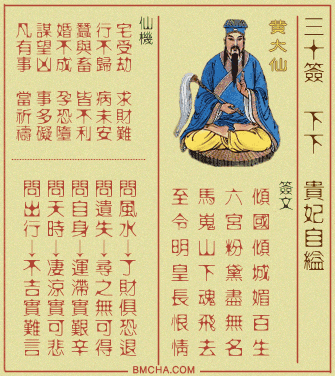 三十簽 下下 貴妃自縊
黃大仙
簽文
傾國傾城媚百生
六宮粉黛盡無名
馬嵬山下魂飛去
至令明皇長恨情
仙機
宅受劫 求財難
行不歸 病未安
蠶與畜 皆不利
婚不成 孕恐墮
謀望凶 事多礙
凡有事 當祈禱
問風水→了財俱恐退
問遺失→尋之無可得
問自身→運滯實艱辛
問天時→淒涼實可悲
問出行→不吉實難言
BMCHA.COM